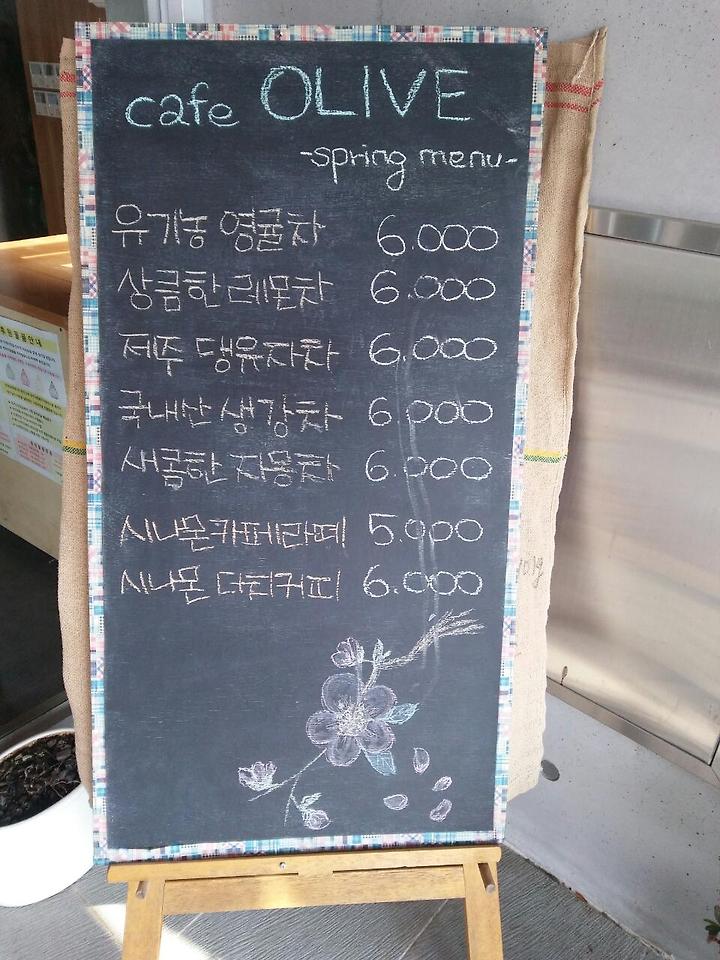 cafe OLIVE
-spring menu-
유기농 영귤차 6.000
상큼한 레몬차 6.000
제주 댕유자차 6.000
국내산 생강차 6.000
새콤한 자몽차 6.000
시나몬카페라떼 5.000
시나몬 더치커피 6.000